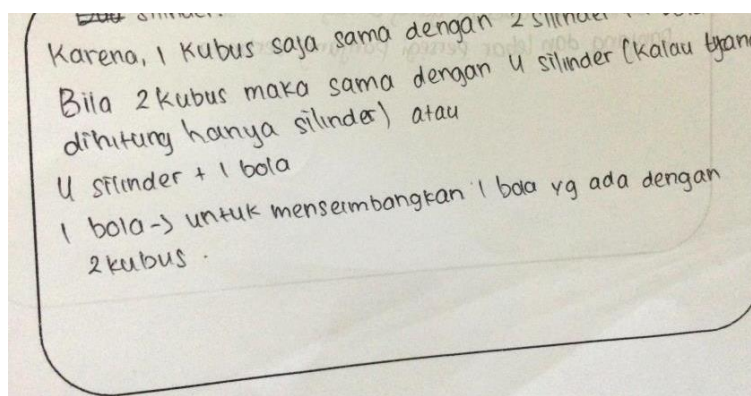 silinder.
Karena, 1 Kubus saja sama dengan 2 silinder
Bila 2 kubus maka sama dengan 4 silinder (kalau
dihitung hanya silinder) atau
4 silinder + 1 bola
1 bola -> untuk menseimbangkan 1 bola yg ada dengan
2 kubus.